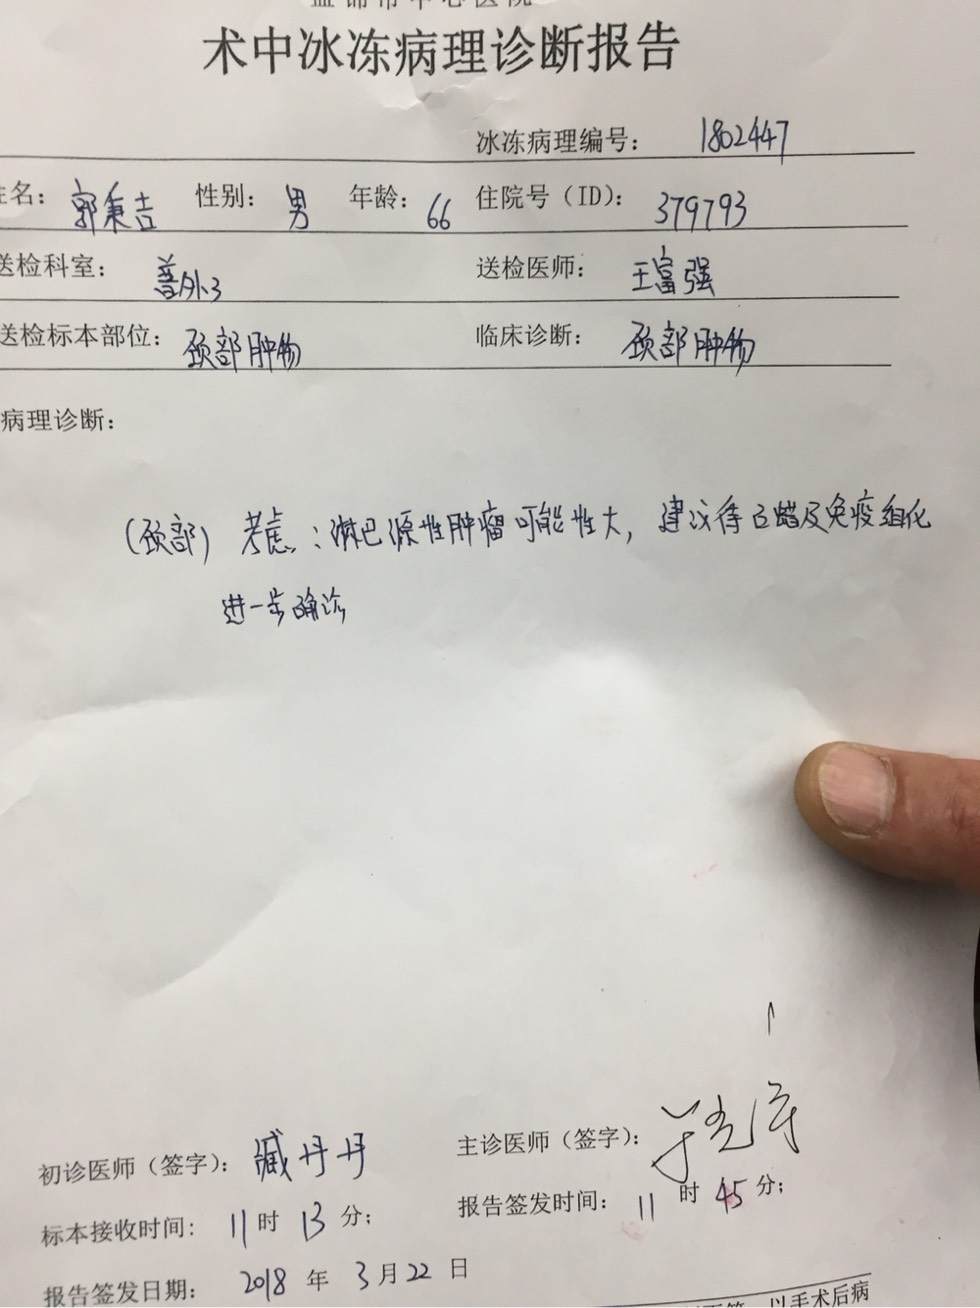 盘锦市中心医院
术中冰冻病理诊断报告
冰冻病理编号: 1802447
姓名: 郭秉吉 性别: 男 年龄: 66 住院号(ID): 379793
送检科室: 普外3 送检医师: 王富强
送检标本部位: 颈部肿物 临床诊断: 颈部肿物
病理诊断:
(颈部) 考虑:淋巴源性肿瘤可能性大, 建议待石蜡及免疫组化
进一步确诊
初诊医师(签字): 臧丹丹 主诊医师(签字):
标本接收时间: 11时13分; 报告签发时间: 11时45分;
报告签发日期: 2018年3月22日
以手术后病